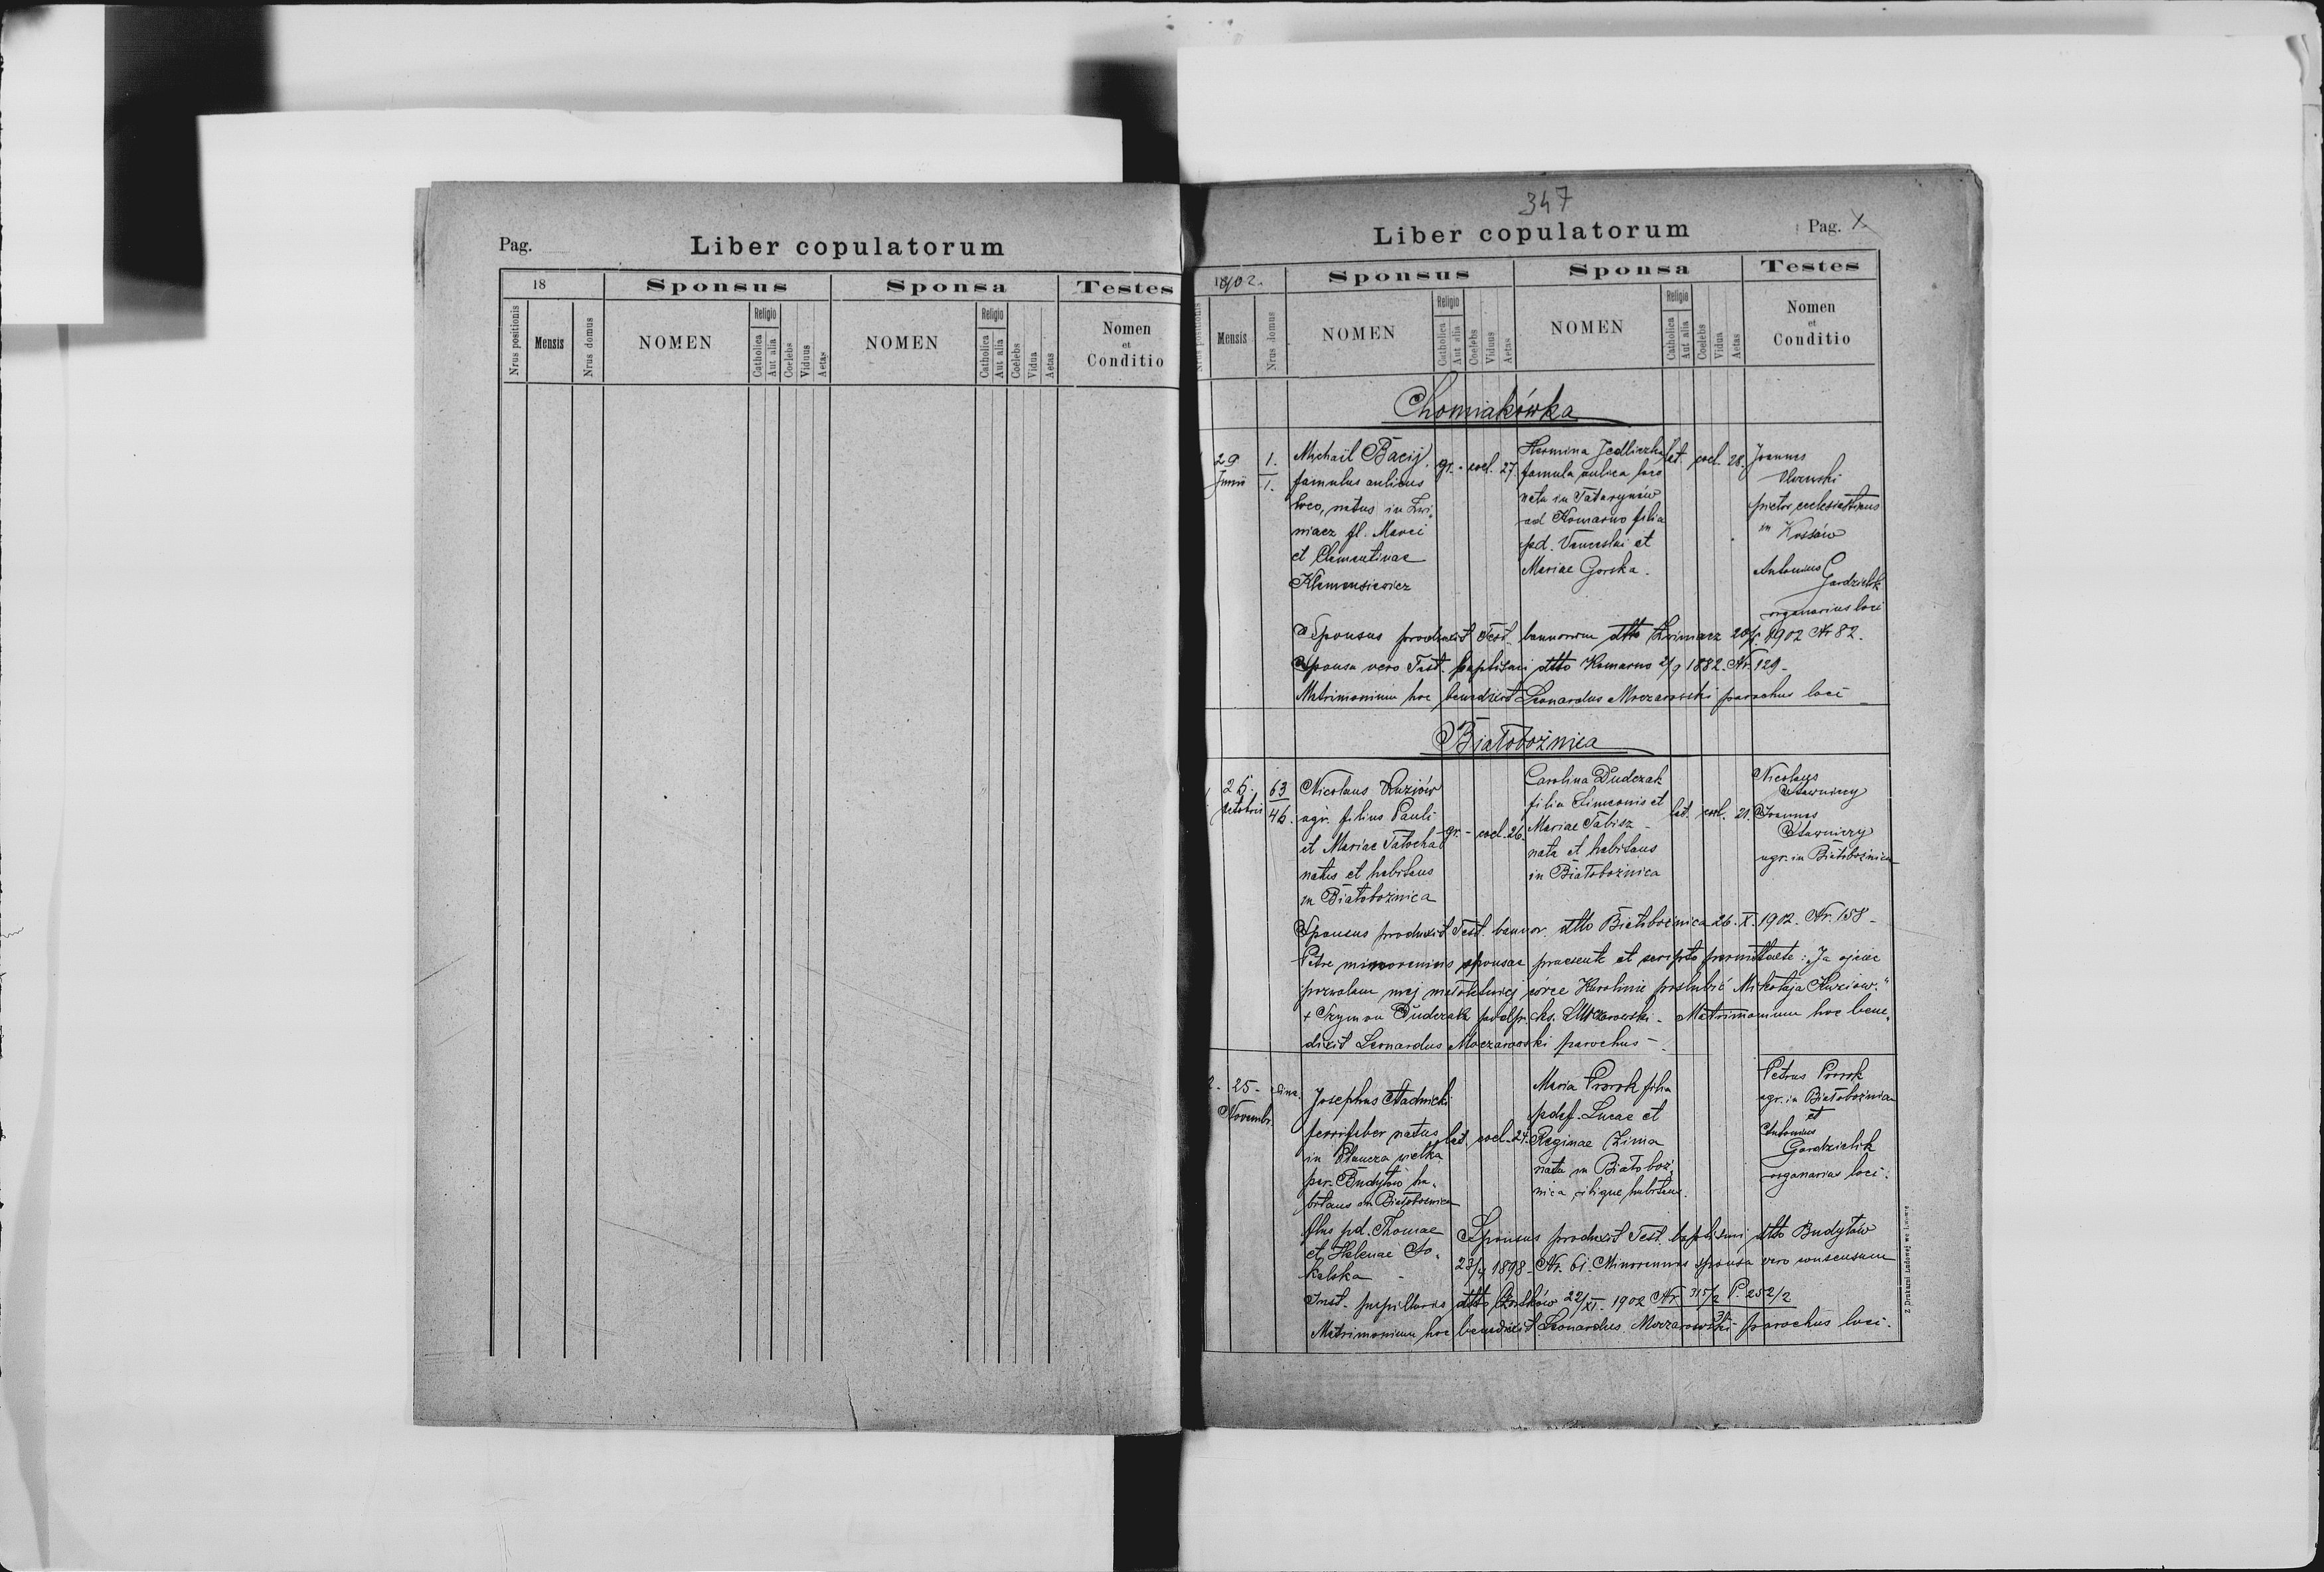 Pag.
Liber copulatorum
18
Sponsus
Sponsa
Testes
Nrus positionis
Mensis
Nrus domus
NOMEN
Religio
Catholica
Aut alia
Coelebs
Viduus
Aetas
NOMEN
Religio
Catholica
Aut alia
Coelebs
Vidua
Aetas
Nomen
et
Conditio
347
Liber copulatorum
Pag.
1902.
Sponsus
Sponsa
Testes
Nrus positionis
Mensis
Nrus domus
NOMEN
Religio
Catholica
Aut alia
Coelebs
Viduus
Aetas
NOMEN
Religio
Catholica
Aut alia
Coelebs
Vidua
Aetas
Nomen
et
Conditio
Chomiakówka
29
Junii
1.
1.
Michaël Bacij
famulus aulicus
loco, natus in Zwi,
niacz fl. Marci
et Clementinae
Klemensiewicz
gr. - coel. 27.
Hermina Jedliczka
famula aulica loco
nata in Tatarynów
ad Komarno filia
pd. Venceslai et
Mariae Gorska.
lat. coel. 28.
Joannes
pictor ecclesiasticus
in Kossów
Antonius
Gardzielik
organarius loci
Sponsus produxit Test. bannorum dtto Zwiniacz 1902 Nr 82.
Sponsa vero Test. baptismi dtto Komarno 2/9 1882. Nr. 129 -
Matrimonium hoc benedixit Leonardus Moczarowski parochus loci -
Białobożnica
26.
Octobris
63
46.
Nicolaus Kuziów
agr. filius Pauli
et Mariae Tatocha
natus et habitans
in Białobożnica
gr. - coel. 26.
Carolina Dudczak
filia Simeonis et
Mariae Tabisz -
nata et habitans
in Białobożnica
lat. coel. 21.
Nicolaus
Sławniczy
Joannes
Sławniczy
agr. in Białobożnica
Sponsus produxit Test. bannor. dtto Białobożnica 26. X. 1902. Nr. 158 -
Patre minorennis sponsae praesente et scripto permittente: „Ja ojciec
pozwalam mej małoletniej córce Karolinie poślubić Mikołaja Kuziów."
+ Szymon Dudczak podp. ks. L Moczarowski - Matrimonium hoc bene,
dixit Leonardus Moczarowski parochus -
2. 25 -
Novembr.
Josephus Stadnicki
ferrifaber natus
in wielka
par. Budyłów ha,
bitans in Białobożnica
flius pd. Thomae
et Helenae So,
kalska -
lat. coel. 27.
Maria Prorok filia
pdef. Lucae et
Reginae Zima
nata in Białoboż,
nica, ibique habitans.
Petrus Prorok
agr. in Białobożnica
et
Antonius
Gardzielik
organarius loci.
Sponsus produxit Test. baptismi dtto Budyłów
1898 - Nr. 61. Minorennis sponsa vero consensum
Inst. pupillaris dtto Czortków 22/XI. 1902 Nr 315/2 P. 252/2
Matrimonium hoc benedixit Leonardus Moczarowski parochus loci.
Z Drukarni Ludowej we Lwowie